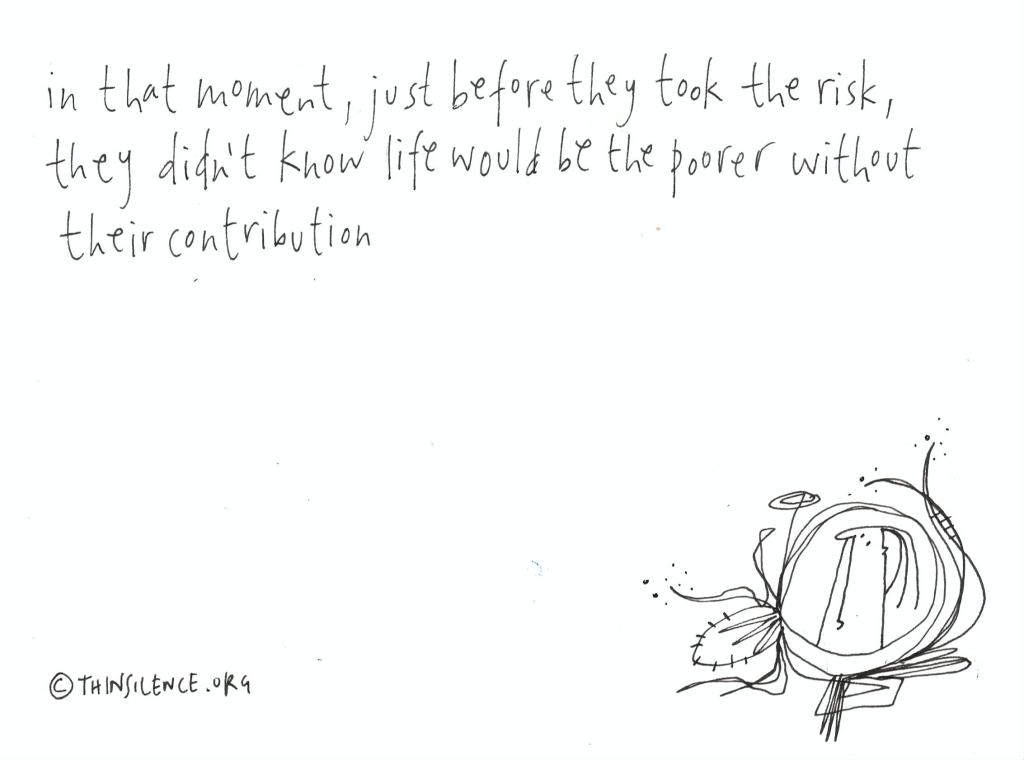 in that moment, just before they took the risk,
they didn't know life would be the poorer without
their contribution
© THINSILENCE.ORG